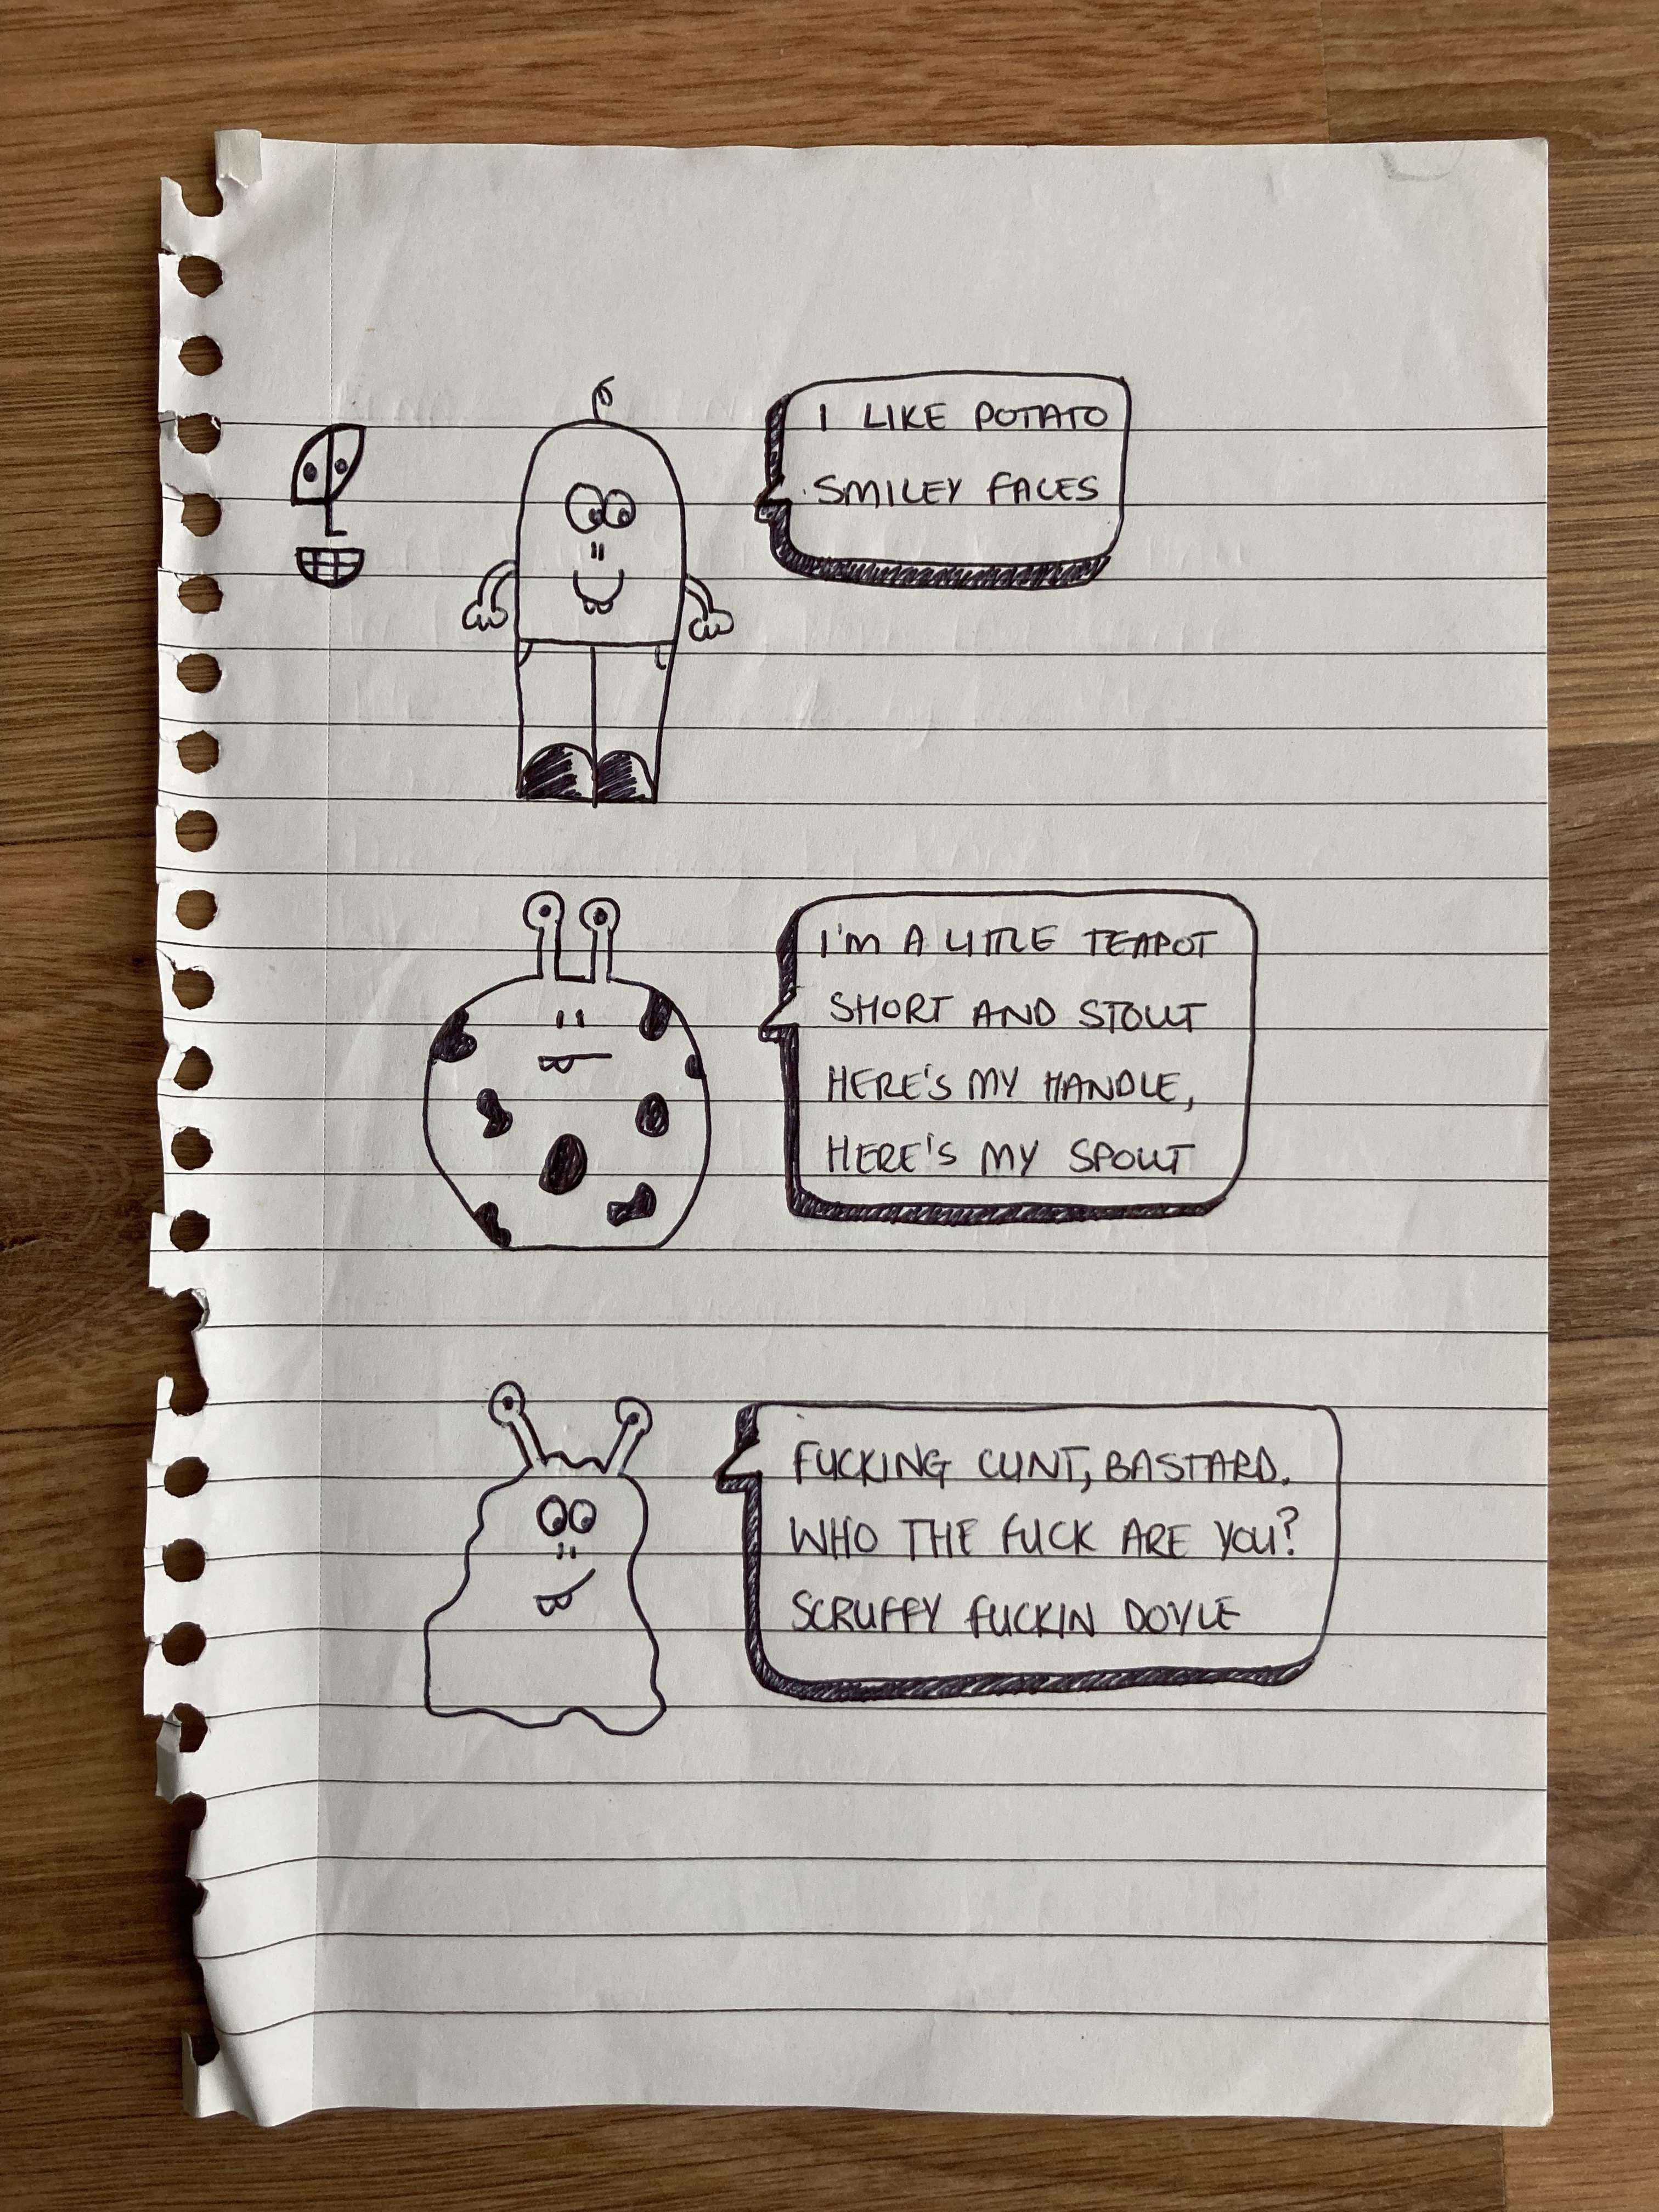 I LIKE POTATO
SMILEY FACES
I'M A LITTLE TEAPOT
SHORT AND STOUT
HERE'S MY HANDLE,
HERE'S MY SPOUT
FUCKING CUNT, BASTARD.
WHO THE FUCK ARE YOU?
SCRUFFY FUCKIN DOYLE